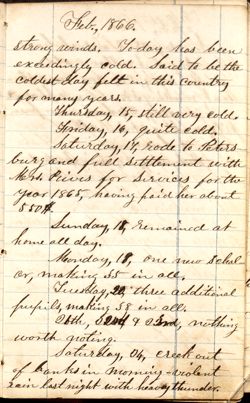 Feb, 1866.
strong winds. Today has been
exceedingly cold. Said to be the
coldest day felt in this country
for many years.
Thursday, 15, still very cold.
Friday, 16, quite cold.
Saturday, 17, rode to Peters
burg and full settlement with
Rives for services for the
year 1865, having paid her about
550$.
Sunday, 18, remained at
home all day.
Monday, 19, one new schol
ar, making 35 in all.
Tuesday, 20, three additional
pupils, making 38 in all.
& 23rd, nothing
worth noting.
Saturday, 24, creek out
of banks in morning - violent
rain last night with heavy thunder.